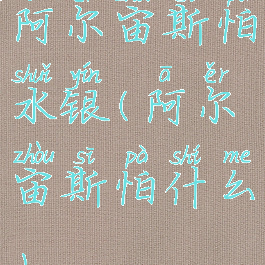 阿尔宙斯怕
shuǐ yín ā ěr
水银(阿尔
zhòu sī pà shí me
宙斯怕什么
)